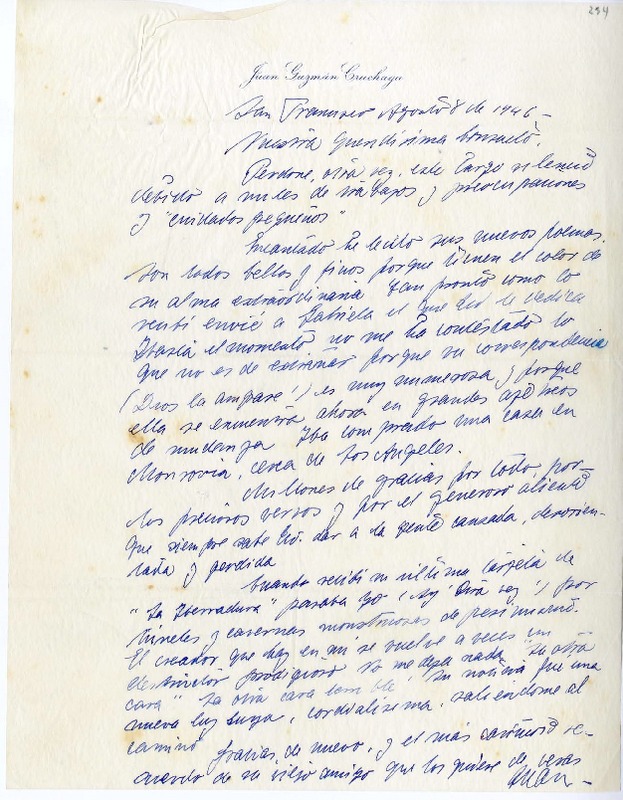 294
Juan Guzmán Cruchaga
San Francisco Agosto 8 de 1946-
Nuestra queridísima Consuelo:
Perdone, otra vez, este largo silencio
debido a miles de trabajos y preocupaciones
y "cuidados pequeños"
Encantado he leído sus nuevos poemas.
Son todos bellos y finos porque tienen el color de
su alma extraordinaria. Tan pronto como lo
recibí envié a Gabriela el que Ud. le dedica
Hasta el momento no me ha contestado lo
que no es de extrañar porque su correspondencia
(Dios la ampare!) es muy numerosa y porque
ella se encuentra ahora en grandes ajetreos
de mudanza. Ha comprado una casa en
Monrovia, cerca de Los Angeles.
Millones de gracias por todo, por
los preciosos versos y por el generoso aliento
que siempre sabe Ud. dar a la gente cansada, desorien-
tada y perdida
Cuando recibí su última tarjeta de
"La Herradura" pasaba yo (Ay! Otra vez!) por
túneles y cavernas monstruosas de pesimismo.
El creador que hay en mí se vuelve a veces un
destructor prodigioso. No me deja nada. "La otra
cara" "La otra cara temible" Su noticia fue una
nueva luz suya, cordialísima, saliéndome al
camino
Gracias, de nuevo, y el más cariñoso re-
cuerdo de su viejo amigo que los quiere de veras
Juan-